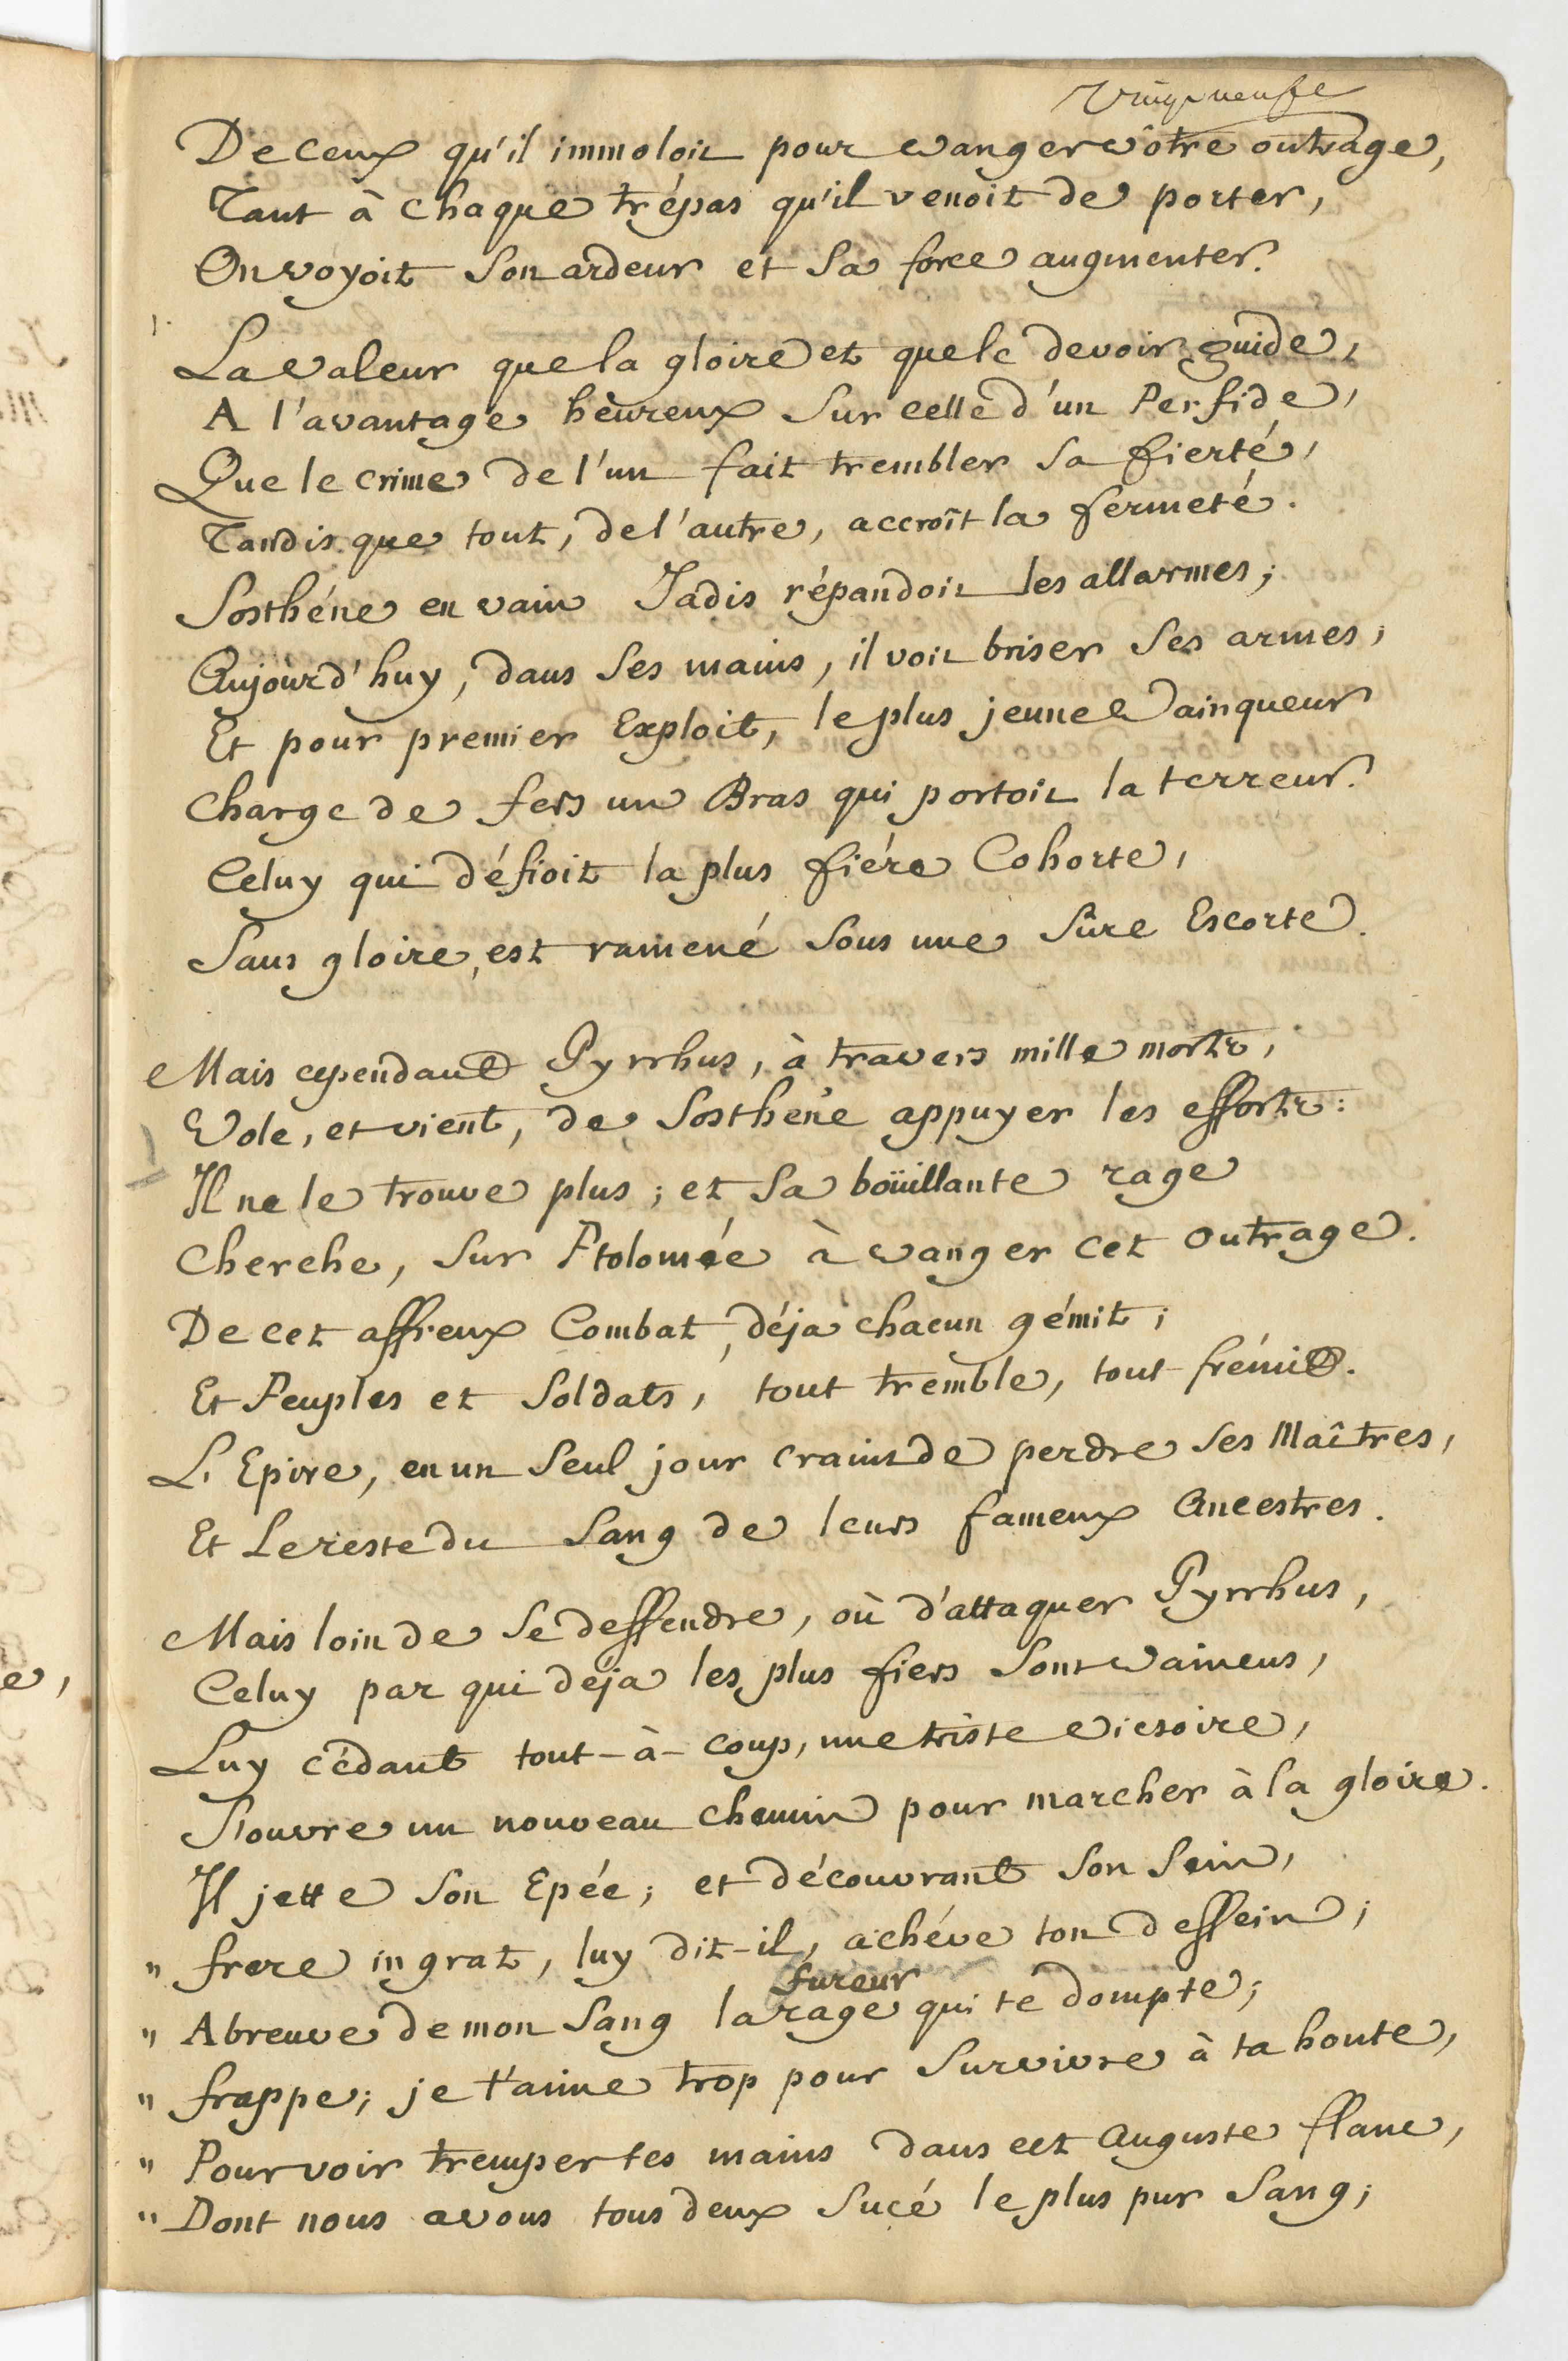 Vingt neufe
De ceux qu'il immoloit pour vanger vôtre outrage,
Tant à chaque trépas qu'il venoit de porter,
On voyoit son ardeur et sa force augmenter.
La valeur que la gloire et que le devoir guide,
A l'avantage heureux sur celle d'un Perfide,
Que le crime de l'un fait trembler sa fierté,
Tandis que tout, de l'autre, accroît la fermeté.
Sosthéne en vain Jadis répandoit les allarmes;
Aujourd'huy, dans ses mains, il voit briser ses armes;
Et pour premier Exploit, le plus jeune Vainqueur
Charge de fers un Bras qui portoit la terreur.
Celuy qui défioit la plus fiére Cohorte,
Sans gloire, est ramené sous une sûre Escorte.
Mais cependant Pyrrhus, à travers mille morts,
Vole, et vient, de Sosthéne appuyer les efforts:
Il ne le trouve plus; et sa boüillante rage
Cherche, sur Ptolomée à vanger cet outrage.
De cet affreux Combat, déja chacun gémit;
Et Peuples et Soldats, tout tremble, tout frémit.
L'Epire, en un seul jour craint de perdre ses Maîtres,
Et Le reste du sang de leurs fameux Ancestres.
Mais loin de se deffendre, où d'attaquer Pyrrhus,
Celuy par qui déja les plus fiers sont vaincus,
Luy cédant tout-à-coup, une triste victoire,
S'ouvre un nouveau chemin pour marcher à la gloire.
Il jette son Epée; et découvrant son sein,
" frere ingrat, luy dit-il, achéve ton dessein;
fureur
" Abreuve de mon sang la rage qui te dompte;
" frappe; je t'aime trop pour survivre à ta honte,
" Pour voir tremper tes mains dans cet auguste flanc,
" Dont nous avons tous deux sucé le plus pur sang;